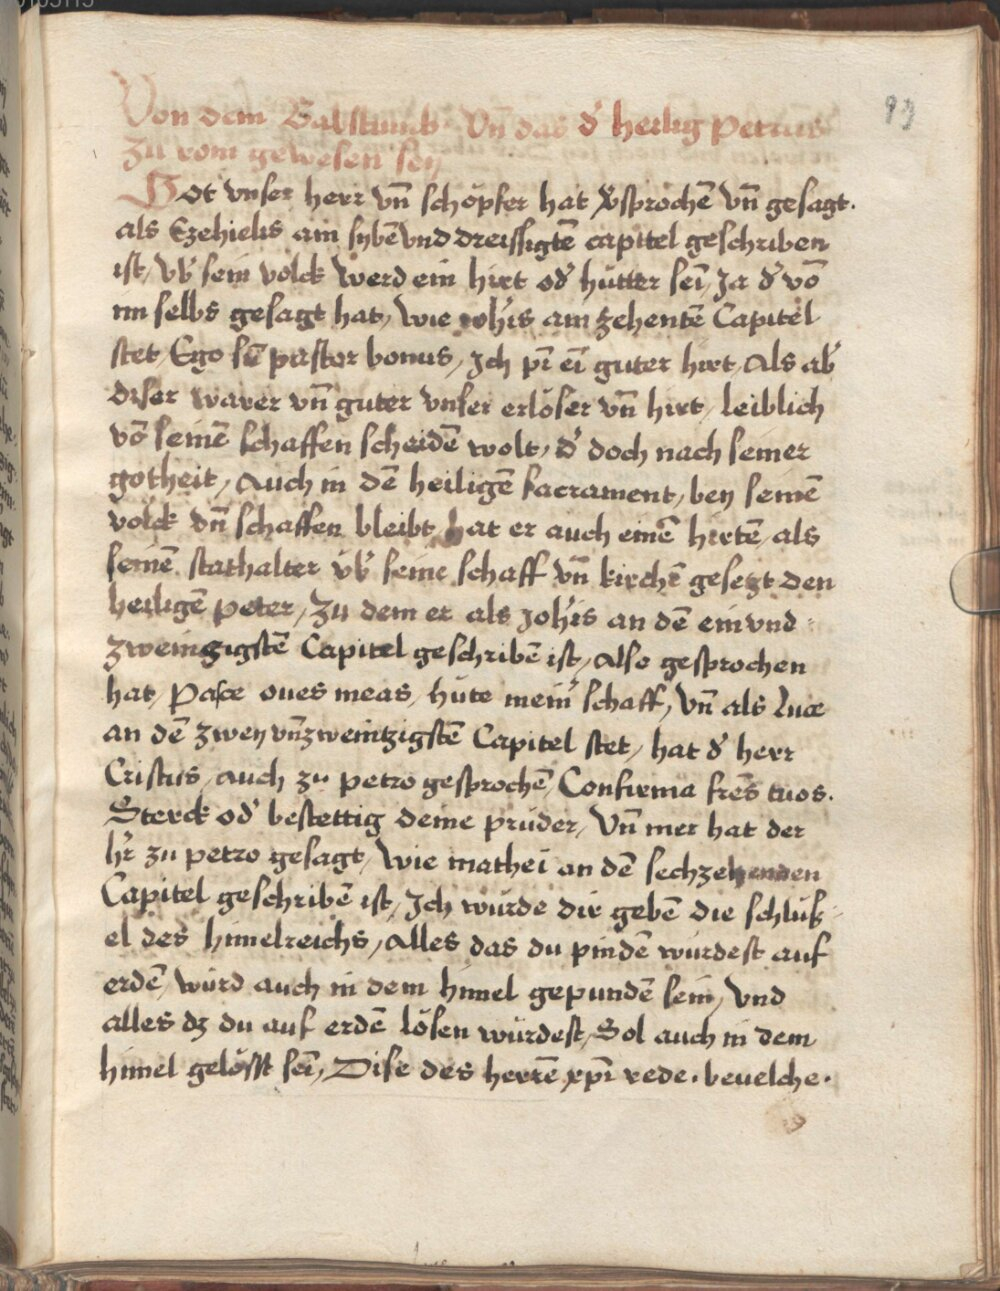 93
Von dem Babstumb Vn̄ das d' heilig petrus
zu rom gewesen sey
Got vnser herr vn̄ schöpfer hat v'sprochē vn̄ gesagt.
als Ezehielis am sybēvnd dreissigtē capitel geschriben
ist, vb' sein volck werd ein hirt od' hütter seī, Ja d' vō
im selbs gesagt hat, wie ioh'is am zehentē Capitel
stet, Ego sū pastor bonus, Ich pī eī guter hirt, Als ab'
diser warer vn̄ guter vnser erlöser vn̄ hirt, leiblich
vō seinē schaffen scheidē wolt, d' doch nach seiner
gotheit, auch in dē heiligē sacrament, bey seinē
volck vn̄ schaffen bleibt hat er auch einē hirtē, als
seinē stathalter vb' seine schaff vn̄ kirchē gesetzt den
heiligē peter, Zu dem er als Joh'is an dē einvnd
zweinzigstē Capitel geschribē ist, also gesprochen
hat, Pasce oues meas, hüte mein' schaff, Vn̄ als Luce
an dē zwey vn̄zweintzigstē Capitel stet, hat d' herr
Cristus, auch zu petro gesprochē, Confirma fr̄es tuos.
Sterck od' bestettig deine prüder, Vn̄ mer hat der
h'r zu petro gesagt, wie mathei an dē sechzehenden
Capitel geschribē ist, Ich würde dir gebē die schlüs
el des himelreichs, Alles das du pindē würdest auf
erdē, würd auch in dem himel gepundē sein, Vnd
alles dz du auf erdē lösen würdest, Sol auch in dem
himel gelösst seī, Dise des herrē xp̄i rede. beuelche.